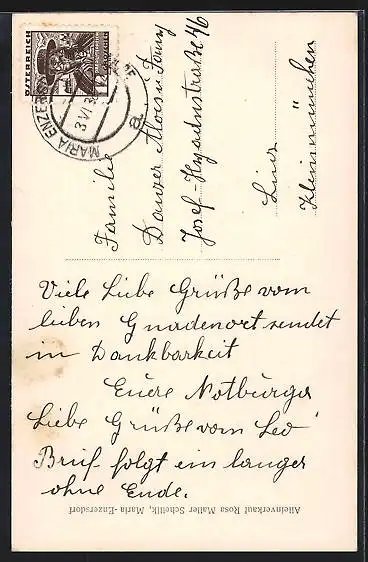 ÖSTERREICH
12
MARIA ENZERSDORF
3.VI.3
a
Familie
Danzer Alois u. Fanny
Josef-Hyrahnstraße 46
Linz
Kleinmünchen
Viele Liebe Grüße vom
lieben Gnadenort sendet
in Dankbarkeit
Euere Notburga
Liebe Grüße vom Leo
Brief folgt ein langer
ohne Ende.
Alleinverkauf Rosa Maller Schottik, Maria-Enzersdorf